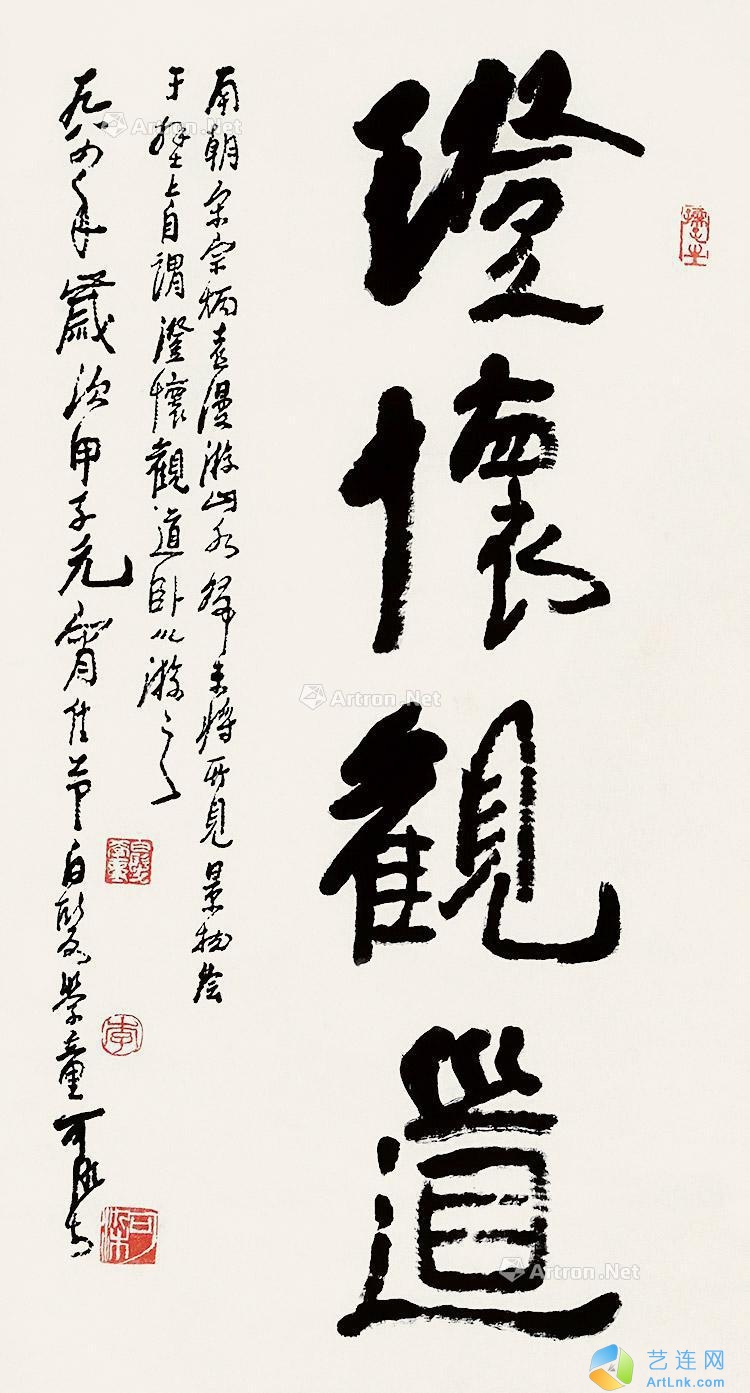 澄懷觀道
南朝宋宗炳喜漫游山水歸來將所見景物繪
于壁上自謂澄懷觀道臥以游之
一九八四年歲次甲子元宵佳節白髮學童可染書
李
可染
Artron.Net
Artron.Net
Artron.Net
艺连网
ArtLnk.com